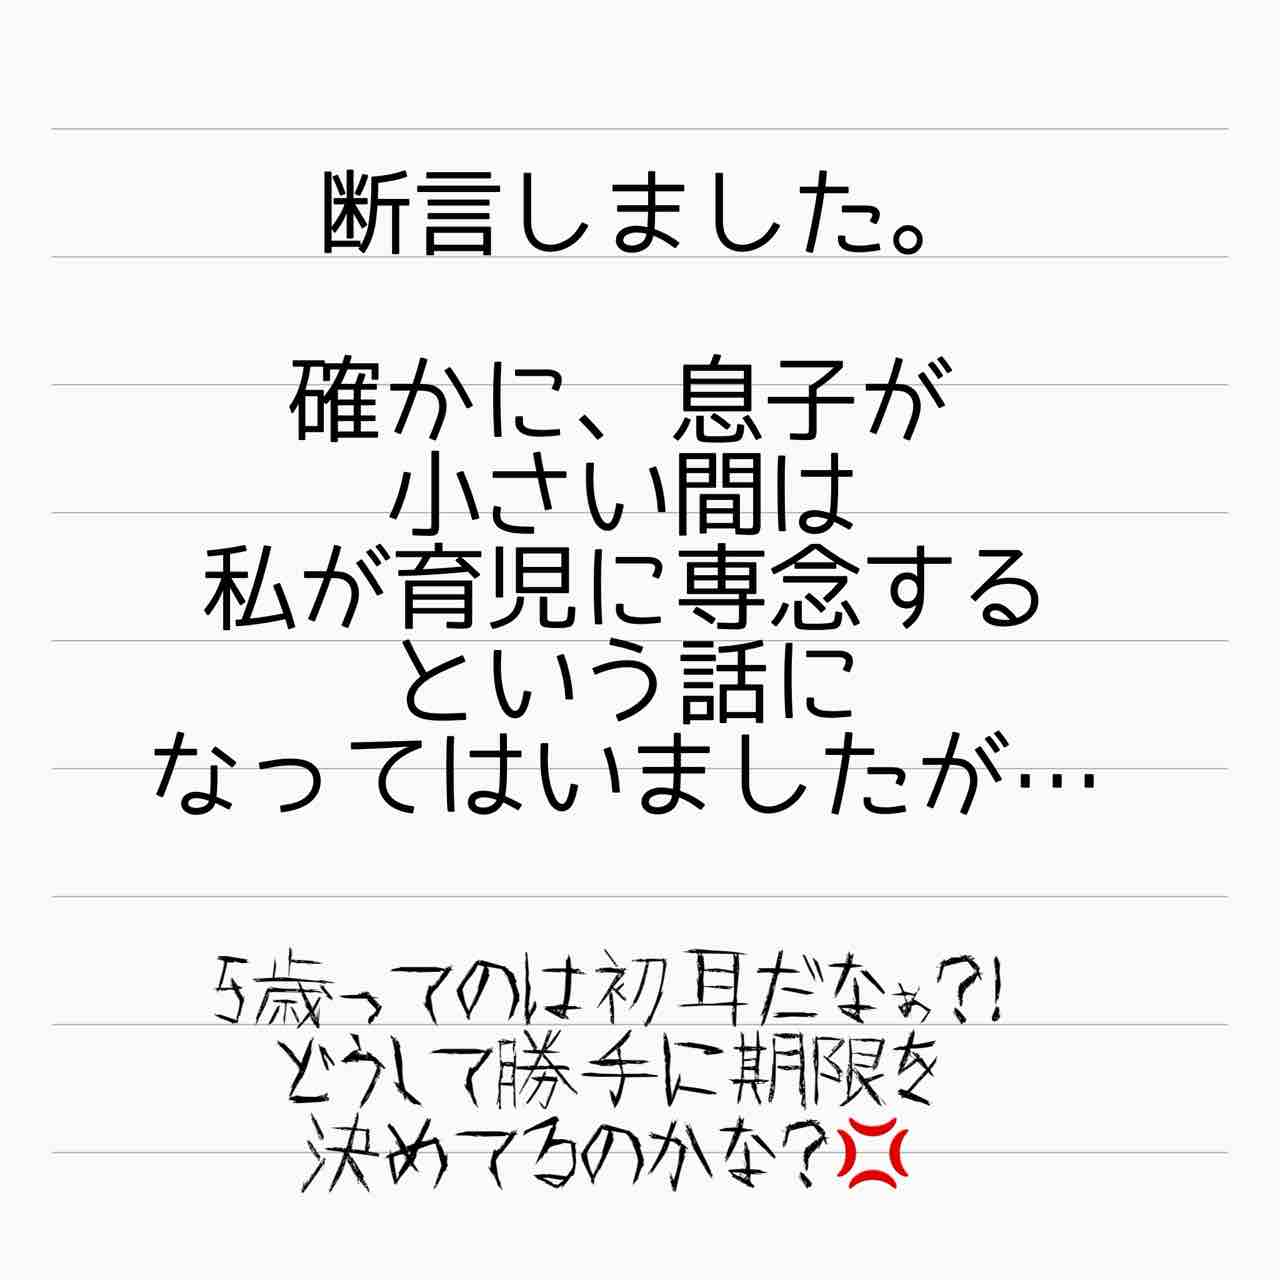 断言しました。
確かに、息子が
小さい間は
私が育児に専念する
という話に
なってはいましたが…
5歳ってのは初耳だなぁ?!
どうして勝手に期限を
決めてるのかな?💢